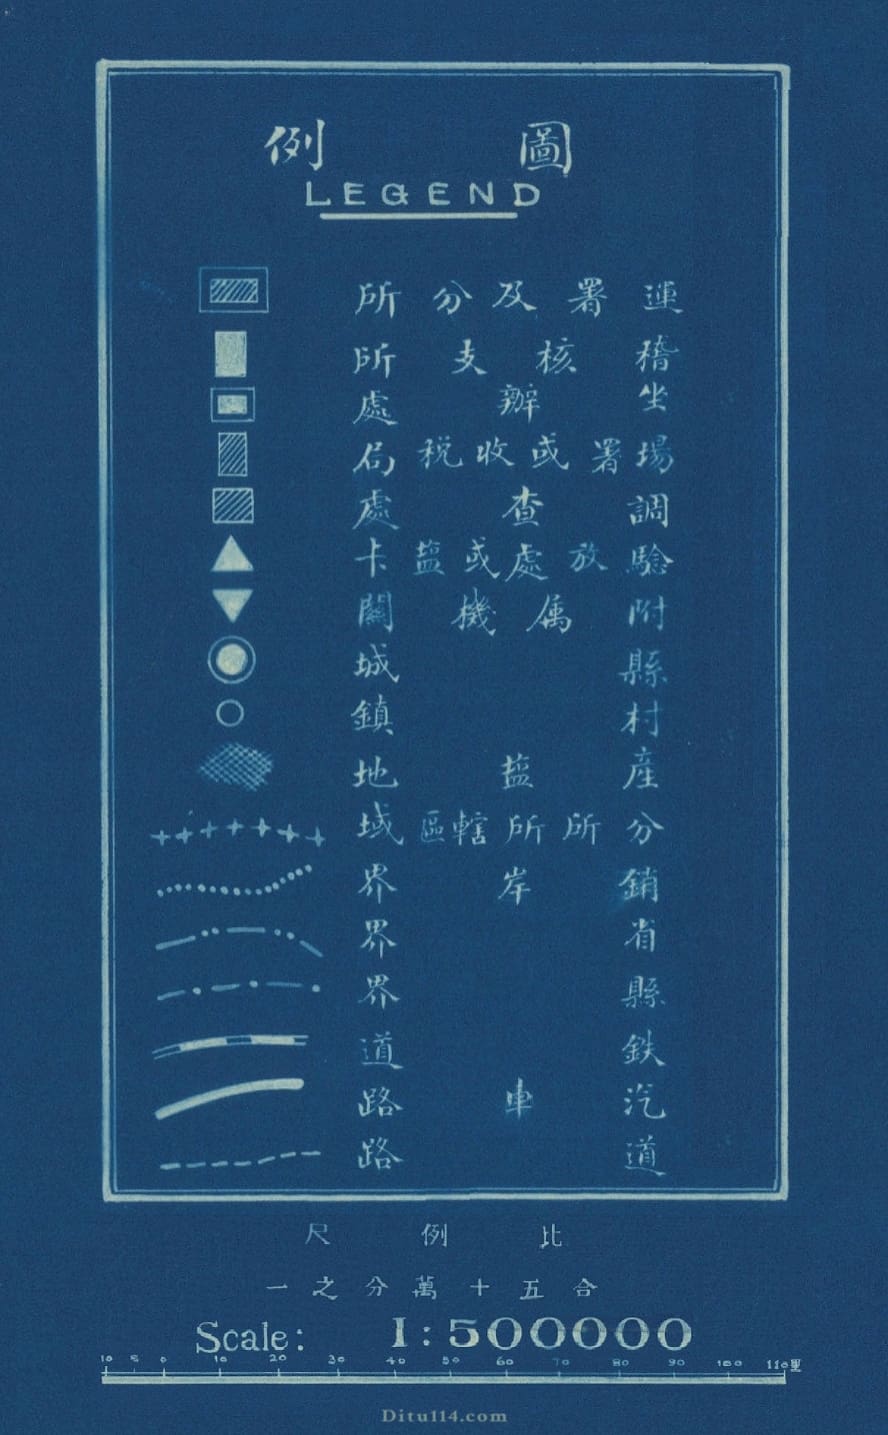 圖例
LEGEND
運署及分所
稽核支所
坐辦處
場署或收稅局
調查處
騐放處或塩卡
附属機關
縣城
村鎮
產塩地
分所所轄區域
銷岸界
省界
縣界
鉄道
汽車路
道路
比例尺
合五十萬分之一
Scale: 1:500000
10 5 0 10 20 30 40 50 60 70 80 90 100 110里
Ditu114.com